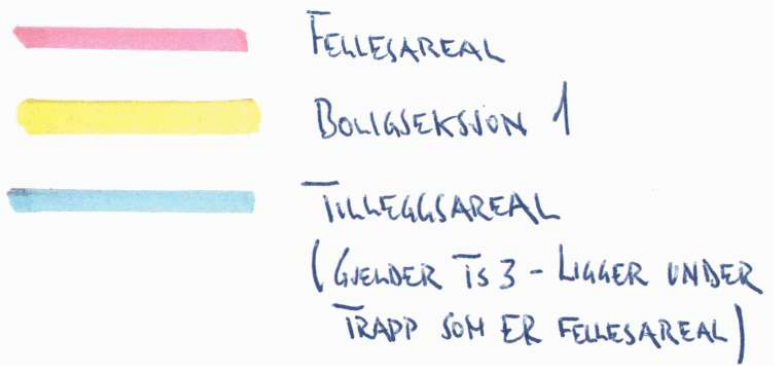 FELLESAREAL
BOLIGSEKSJON 1
TILLEGGSAREAL
(GJELDER TS 3 - LIGGER UNDER
TRAPP SOM ER FELLESAREAL)